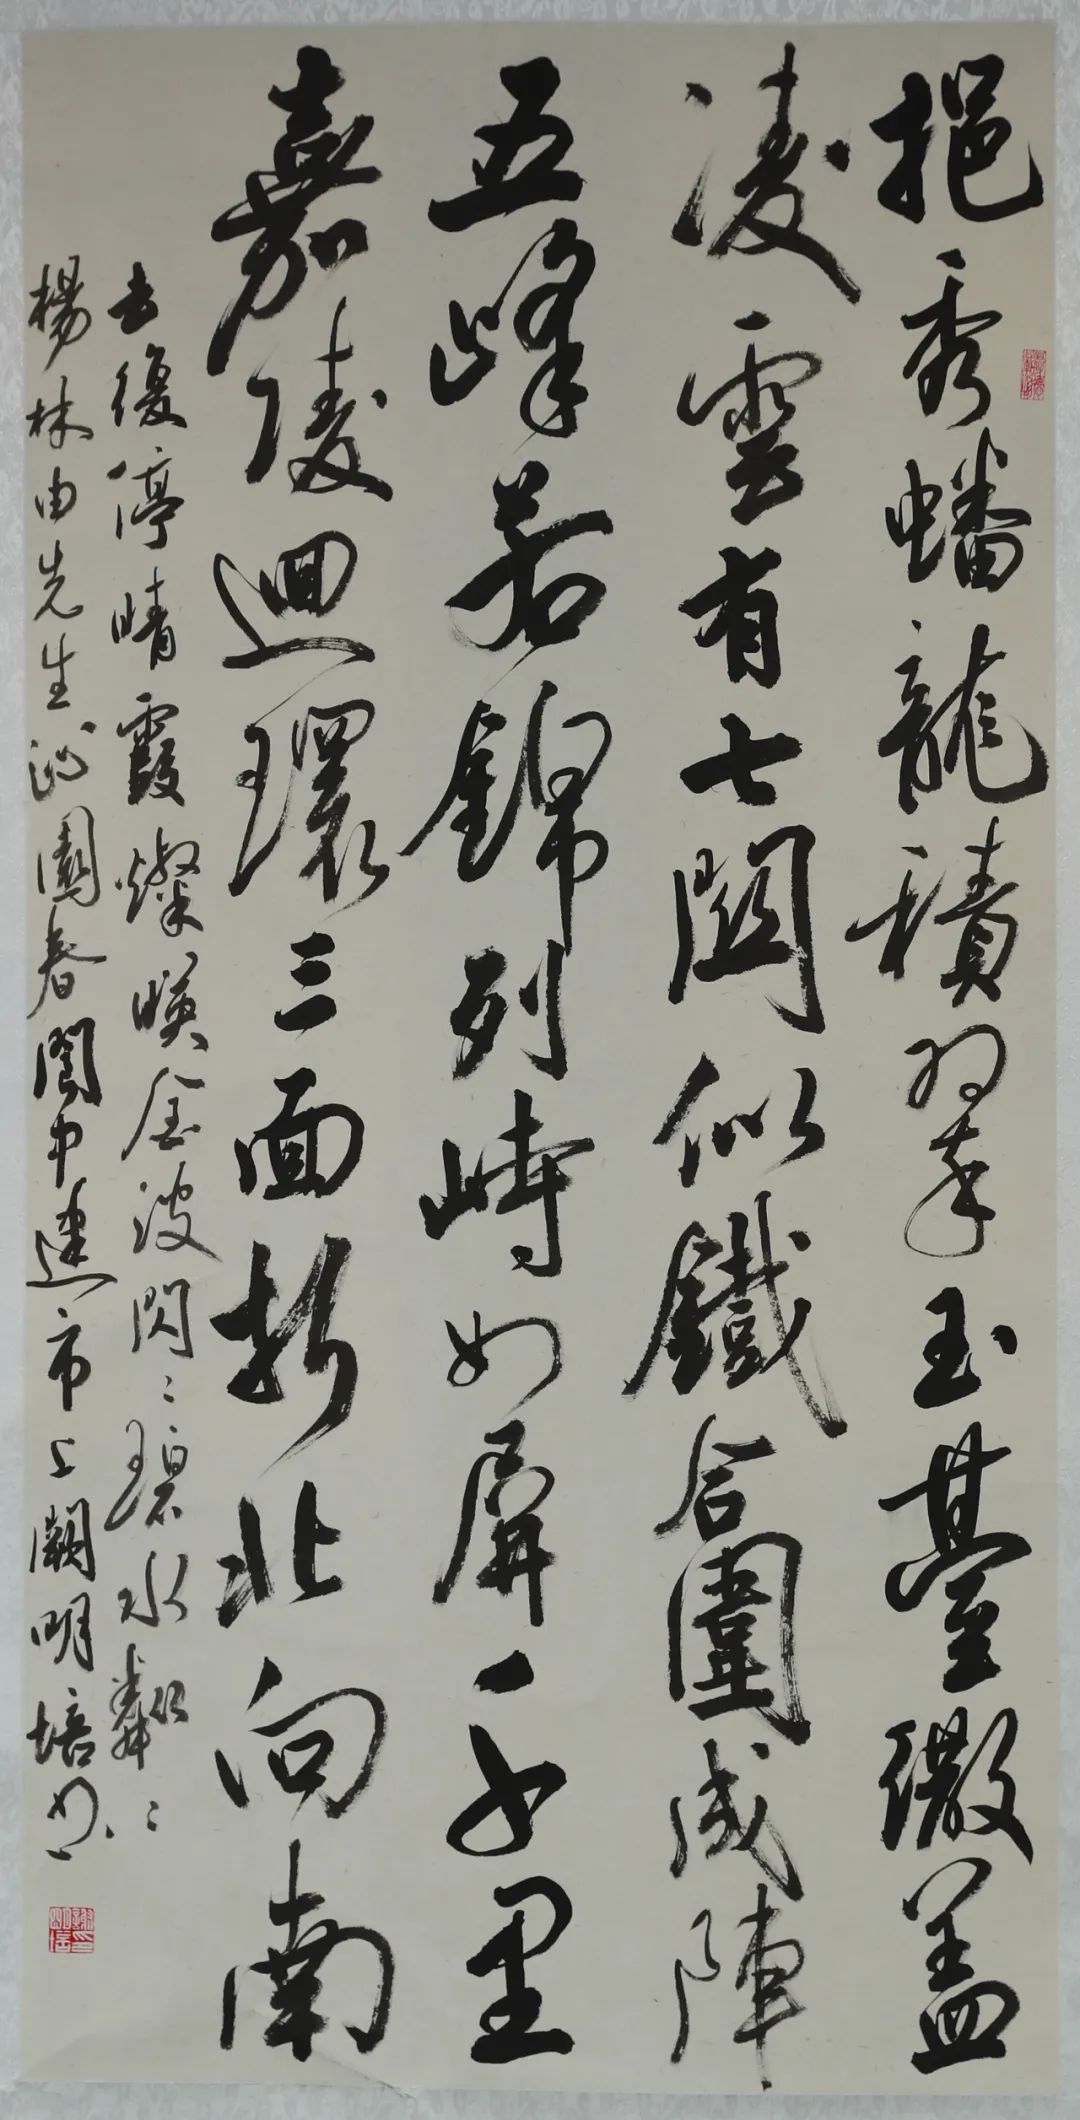 挹秀蟠龍積翠玉臺繖蓋
凌雲有七關似鐵合圍成陣
五峰若錦列峙如屏千里
嘉陵迴環三面折北向南
去復停晴霞燦映金波閃〻碧水粼〻
楊林由先生沁園春閬中建市上闋明培書